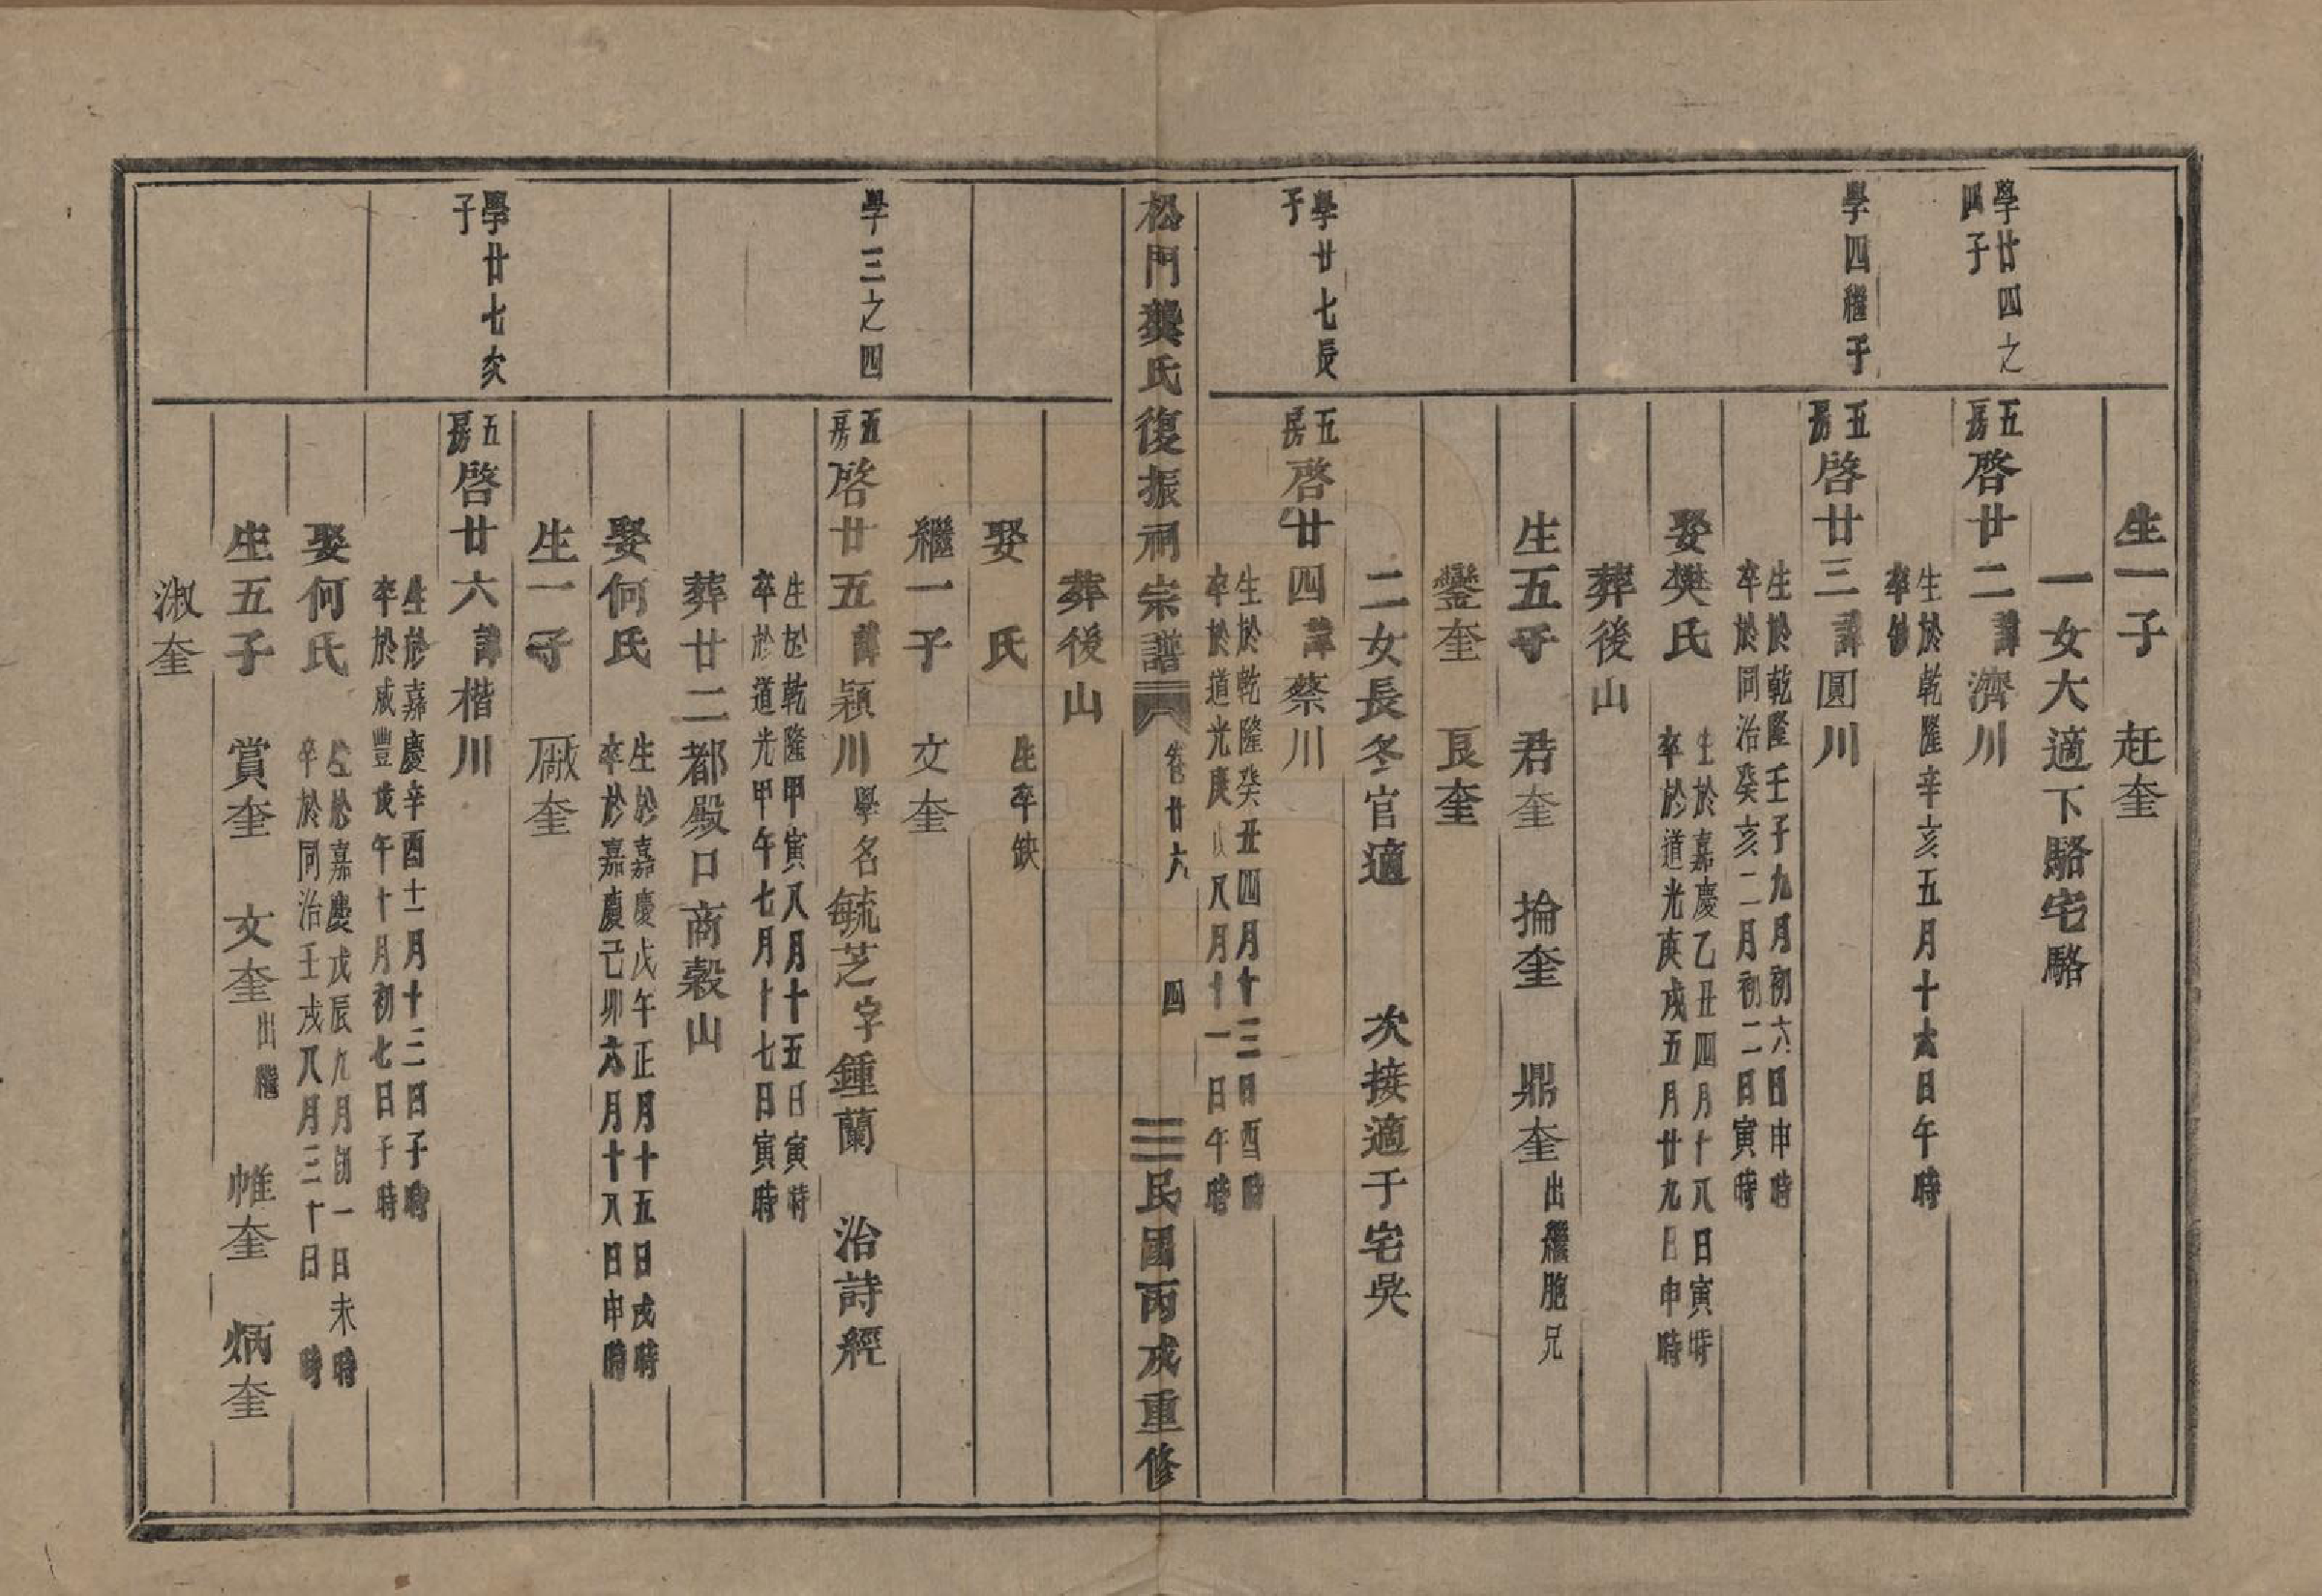 生一子　赶奎
一女大適下駱宅駱
學廿四之
四子
五房啓廿二　諱濟川
生於乾隆辛亥五月十六日午時
卒缺
學四繼子
五房啓廿三　諱圓川
生於乾隆壬子九月初六日申時
卒於同治癸亥二月初二日寅時
娶樊氏　生於嘉慶乙丑四月十八日寅時
卒於道光庚戌五月廿九日申時
葬後山
生五子　君奎　掄奎　鼎奎出繼胞兄
鑾奎　良奎
二女長冬官適　次接適于宅吳
學廿七長
子
五房啓廿四　諱蔡川
生於乾隆癸丑四月十三日酉時
卒於道光庚戌八月十一日午時
松門龔氏復振祠宗譜　卷廿六　四　民國丙戌重修
葬後山
娶　氏　生卒缺
繼一子　文奎
學三之四
五房啓廿五　諱穎川　學名毓芝字鍾蘭　治詩經
生於乾隆甲寅八月十五日寅時
卒於道光甲午七月十七日寅時
葬廿二都殿口商穀山
娶何氏　生於嘉慶戊午正月十五日戌時
卒於嘉慶己卯六月十八日申時
生一子　廠奎
學廿七次
子
五房啓廿六　諱楷川
生於嘉慶辛酉十一月十二日子時
卒於咸豐戊午十月初七日子時
娶何氏　生於嘉慶戊辰九月初一日未時
卒於同治壬戌八月三十日　時
生五子　賞奎　文奎出繼　帷奎　炳奎
淑奎